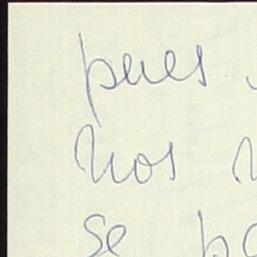 pues
nos
se